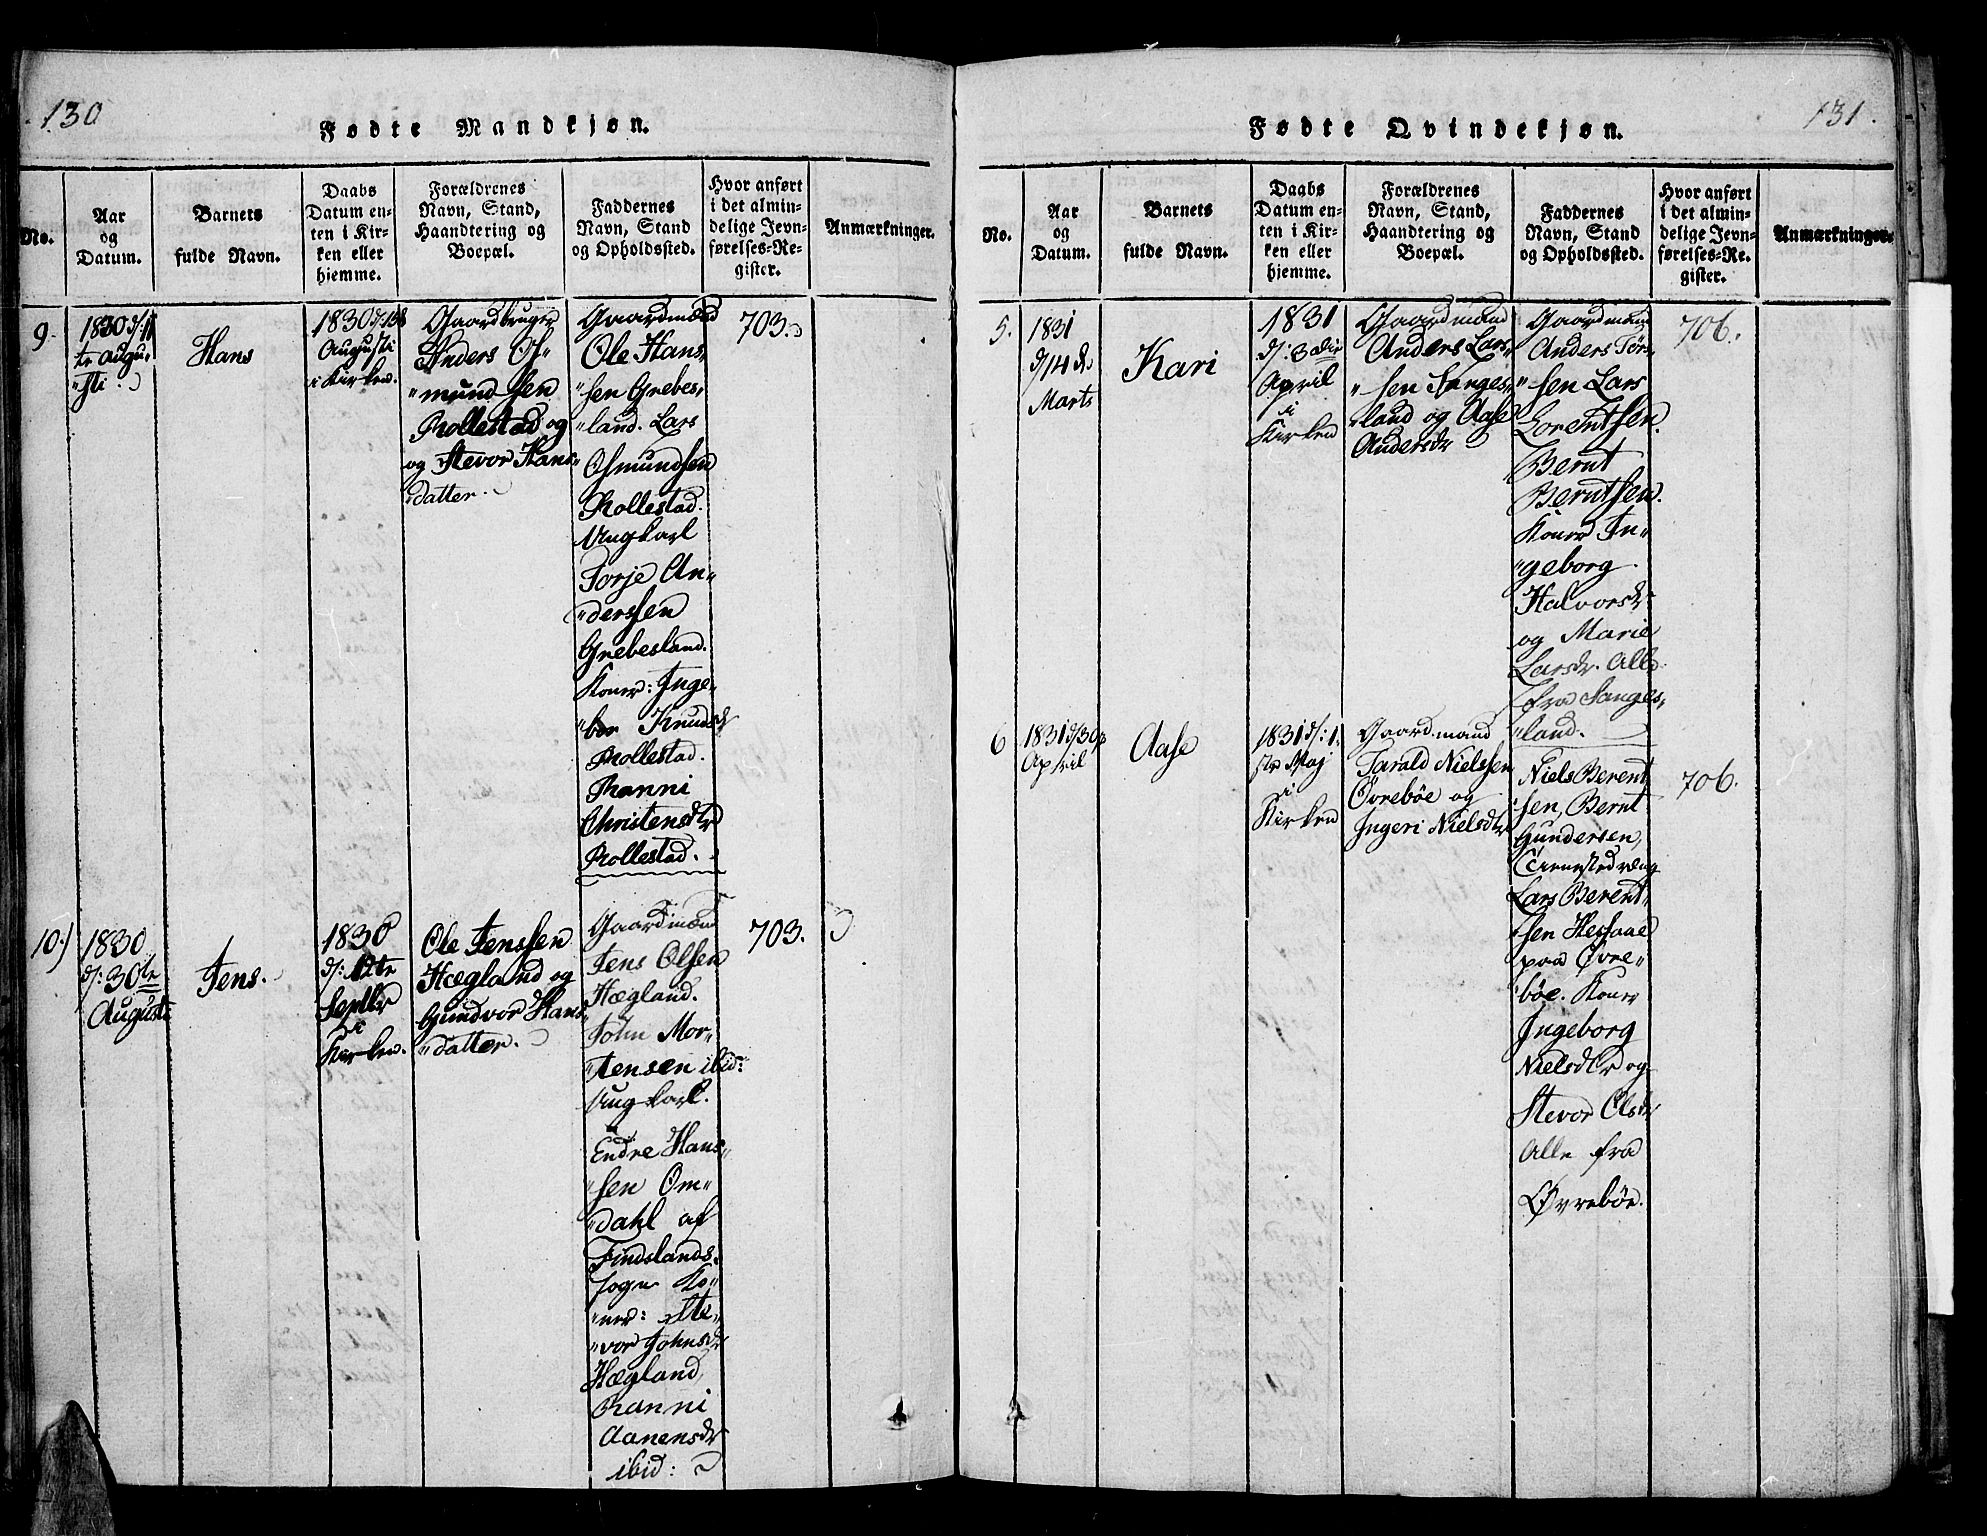 130
Fødte Mandkjøn.
No.
Aar
og
Datum.
Barnets
fulde Navn.
Daabs
Datum en-
ten i Kir-
ken eller
hjemme.
Forældrenes
Navn, Stand,
Haandtering og
Boepæl.
Faddernes
Navn, Stand
og Opholdssted.
Hvor anført
i det almin-
delige Jevn-
førelses-Re-
gister.
Anmærkninger.
9.
1830 d: 11
te augu-
"sti.
Hans
1830 d: 15
Augusti
i Kirken.
Gaardbruger
Anders Os-
"mundsen
Rollestad og
og Stevor Hans-
"datter.
Gaardmænd
Ole Hans-
"sen Grebes-
"land. Lars
Osmundsen
Rollestad.
Ungkarl
Torje An-
"derssen
Grebesland.
Koner: Inge-
"bor Knudsdr
Rollestad.
Ranni
Christensdtr
Rollestad.
703.
10.)
1830
d: 30te
Augusti
Jens.
1830
d: 12te
Septbr
i
Kirken.
Ole Jenssen
Hægland og
Gundvor Hans-
"datter.
Gaardmænd
Jens Olsen
Hægland.
John Mor-
"tensen ibid:
Ungkarl.
Endre Hans-
"sen Om-
"dahl af
Findslands
sogn Ko-
"ner: Ste-
"vor Johnsdr
Hægland,
Ranni
Aanensdr
ibid:
703.
131.
Fødte Qvindekjøn.
No.
Aar
og
Datum.
Barnets
fulde Navn.
Daabs
Datum en-
ten i Kir-
ken eller
hjemme.
Forældrenes
Navn, Stand,
Haandtering og
Boepæl.
Faddernes
Navn, Stand
og Opholdssted.
Hvor anført
i det almin-
delige Jevn-
førelses-Re-
gister.
Anmærkninger.
5.
1831
d/14de
Marts
Kari
1831
d: 3die
April
i
Kirken
Gaardmand
Anders Lars-
"sen Sanges-
"land og Aase
Andersdr
Gaardmænd
Anders Tørs-
"sen Lars
Lorentsen.
Bernt
Berntsen.
Koner In-
"geborg
Halvorsdr
og Marie
Larsdr. Alle
fra Sanges-
"land.
706.
6
1831 d/30
April
Aase
1831 d: 1
ste Maj
i
Kirken
Gaardmand
Tarald Nielssen
Øvrebøe og
Ingeri Nielsdtr
Niels Berent
sen, Bernt
Gundersen,
Lars Berent-
"sen Hessaae
paa Øvre-
"bøe. Koner
Ingeborg
Nielsdtr og
Stevor Olsdr
Alle fra
Øvrebøe.
706.